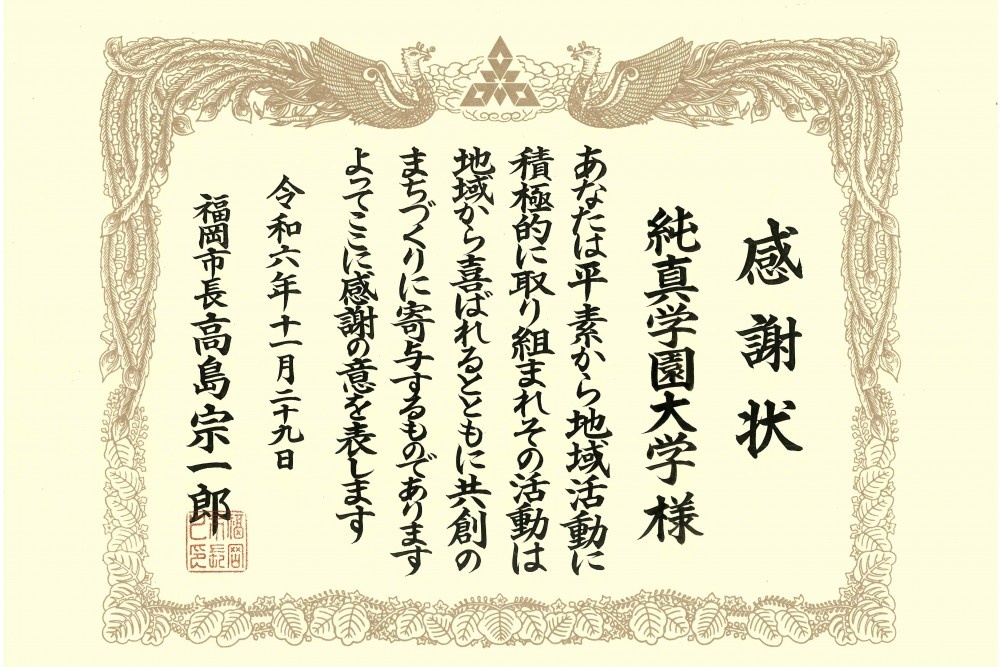 感謝状
純真学園大学様
あなたは平素から地域活動に
積極的に取り組まれその活動は
地域から喜ばれるとともに共創の
まちづくりに寄与するものであります
よってここに感謝の意を表します
令和六年十一月二十九日
福岡市長高島宗一郎
福岡
市長
之印